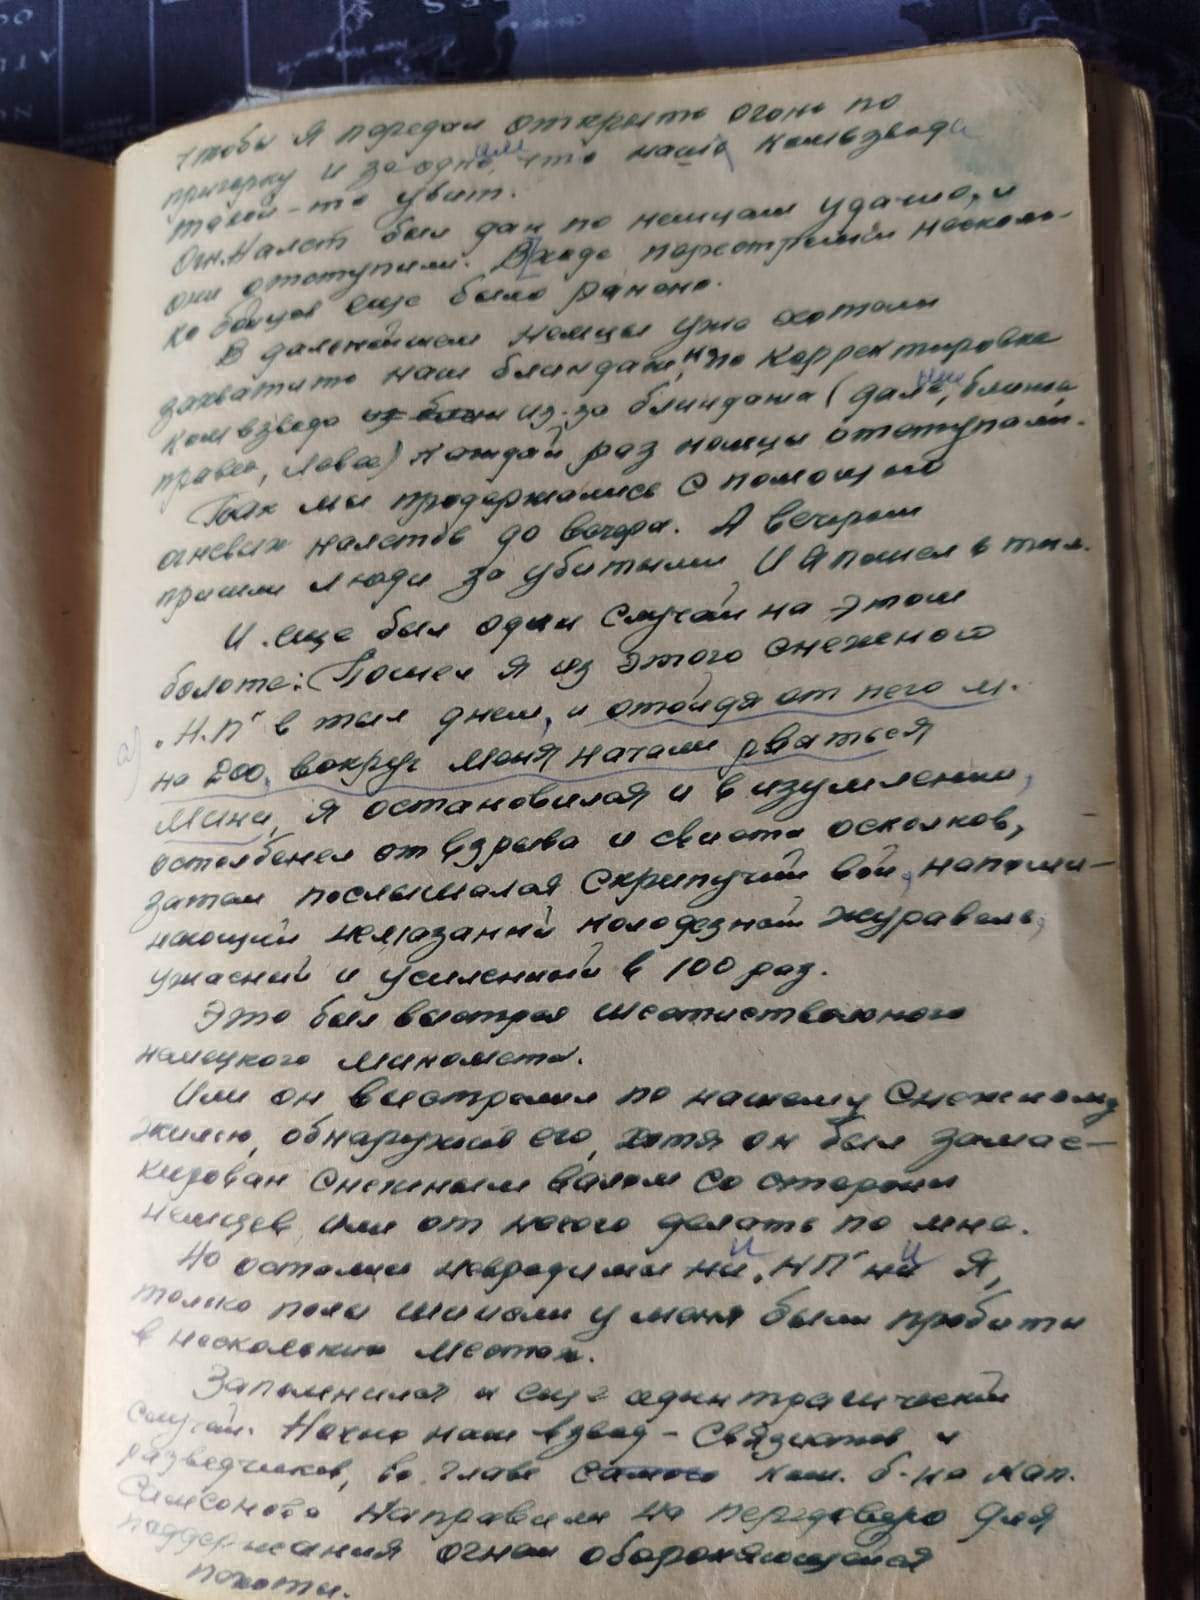 чтобы я передал открыть огонь по
пригорку и заодно, что наш комвзвода
такой-то убит.
Огн. Налет был дан по немцам удачно, и
они отступили. В ходе перестрелки несколь-
ко бойцов еще было ранено.
В дальнейшем немцы уже хотели
захватить наш блиндаж, но по корректировке
комвзвода из-за блиндажа (далее, ближе,
правее, левее) каждый раз немцы отступали.
Так мы продержались с помощью
огневых налетов до вечера. А вечером
пришли люди за убитыми и я пошел в тыл.
И еще был один случай на этом
болоте: Пошел я из этого снежного
"Н.П" в тыл днем, и отойдя от него м.
а)
на 200, вокруг меня начали рваться
мины, я остановился и в изумлении,
остолбенел от взрыва и свиста осколков,
затем послышался скрипучий вой, напоми-
нающий немазанный колодезной журавель,
ужасный и усиленный в 100 раз.
Это был выстрел шестиствольного
немецкого миномета.
Или он выстрелил по нашему снежному
жилью, обнаружив его, хотя он был замас-
кирован снежным валом со стороны
немцев, или от нечего делать по мне.
Но остались невредимы ни "НП" ни Я,
только полы шинели у меня были пробиты
в нескольких местах.
Запомнился и еще один трагический
случай. Ночью наш взвод - связистов и
разведчиков, во главе самого ком. б-на кап.
Самсонова направили на передовую для
поддержания огнем обороняющейся
пехоты.